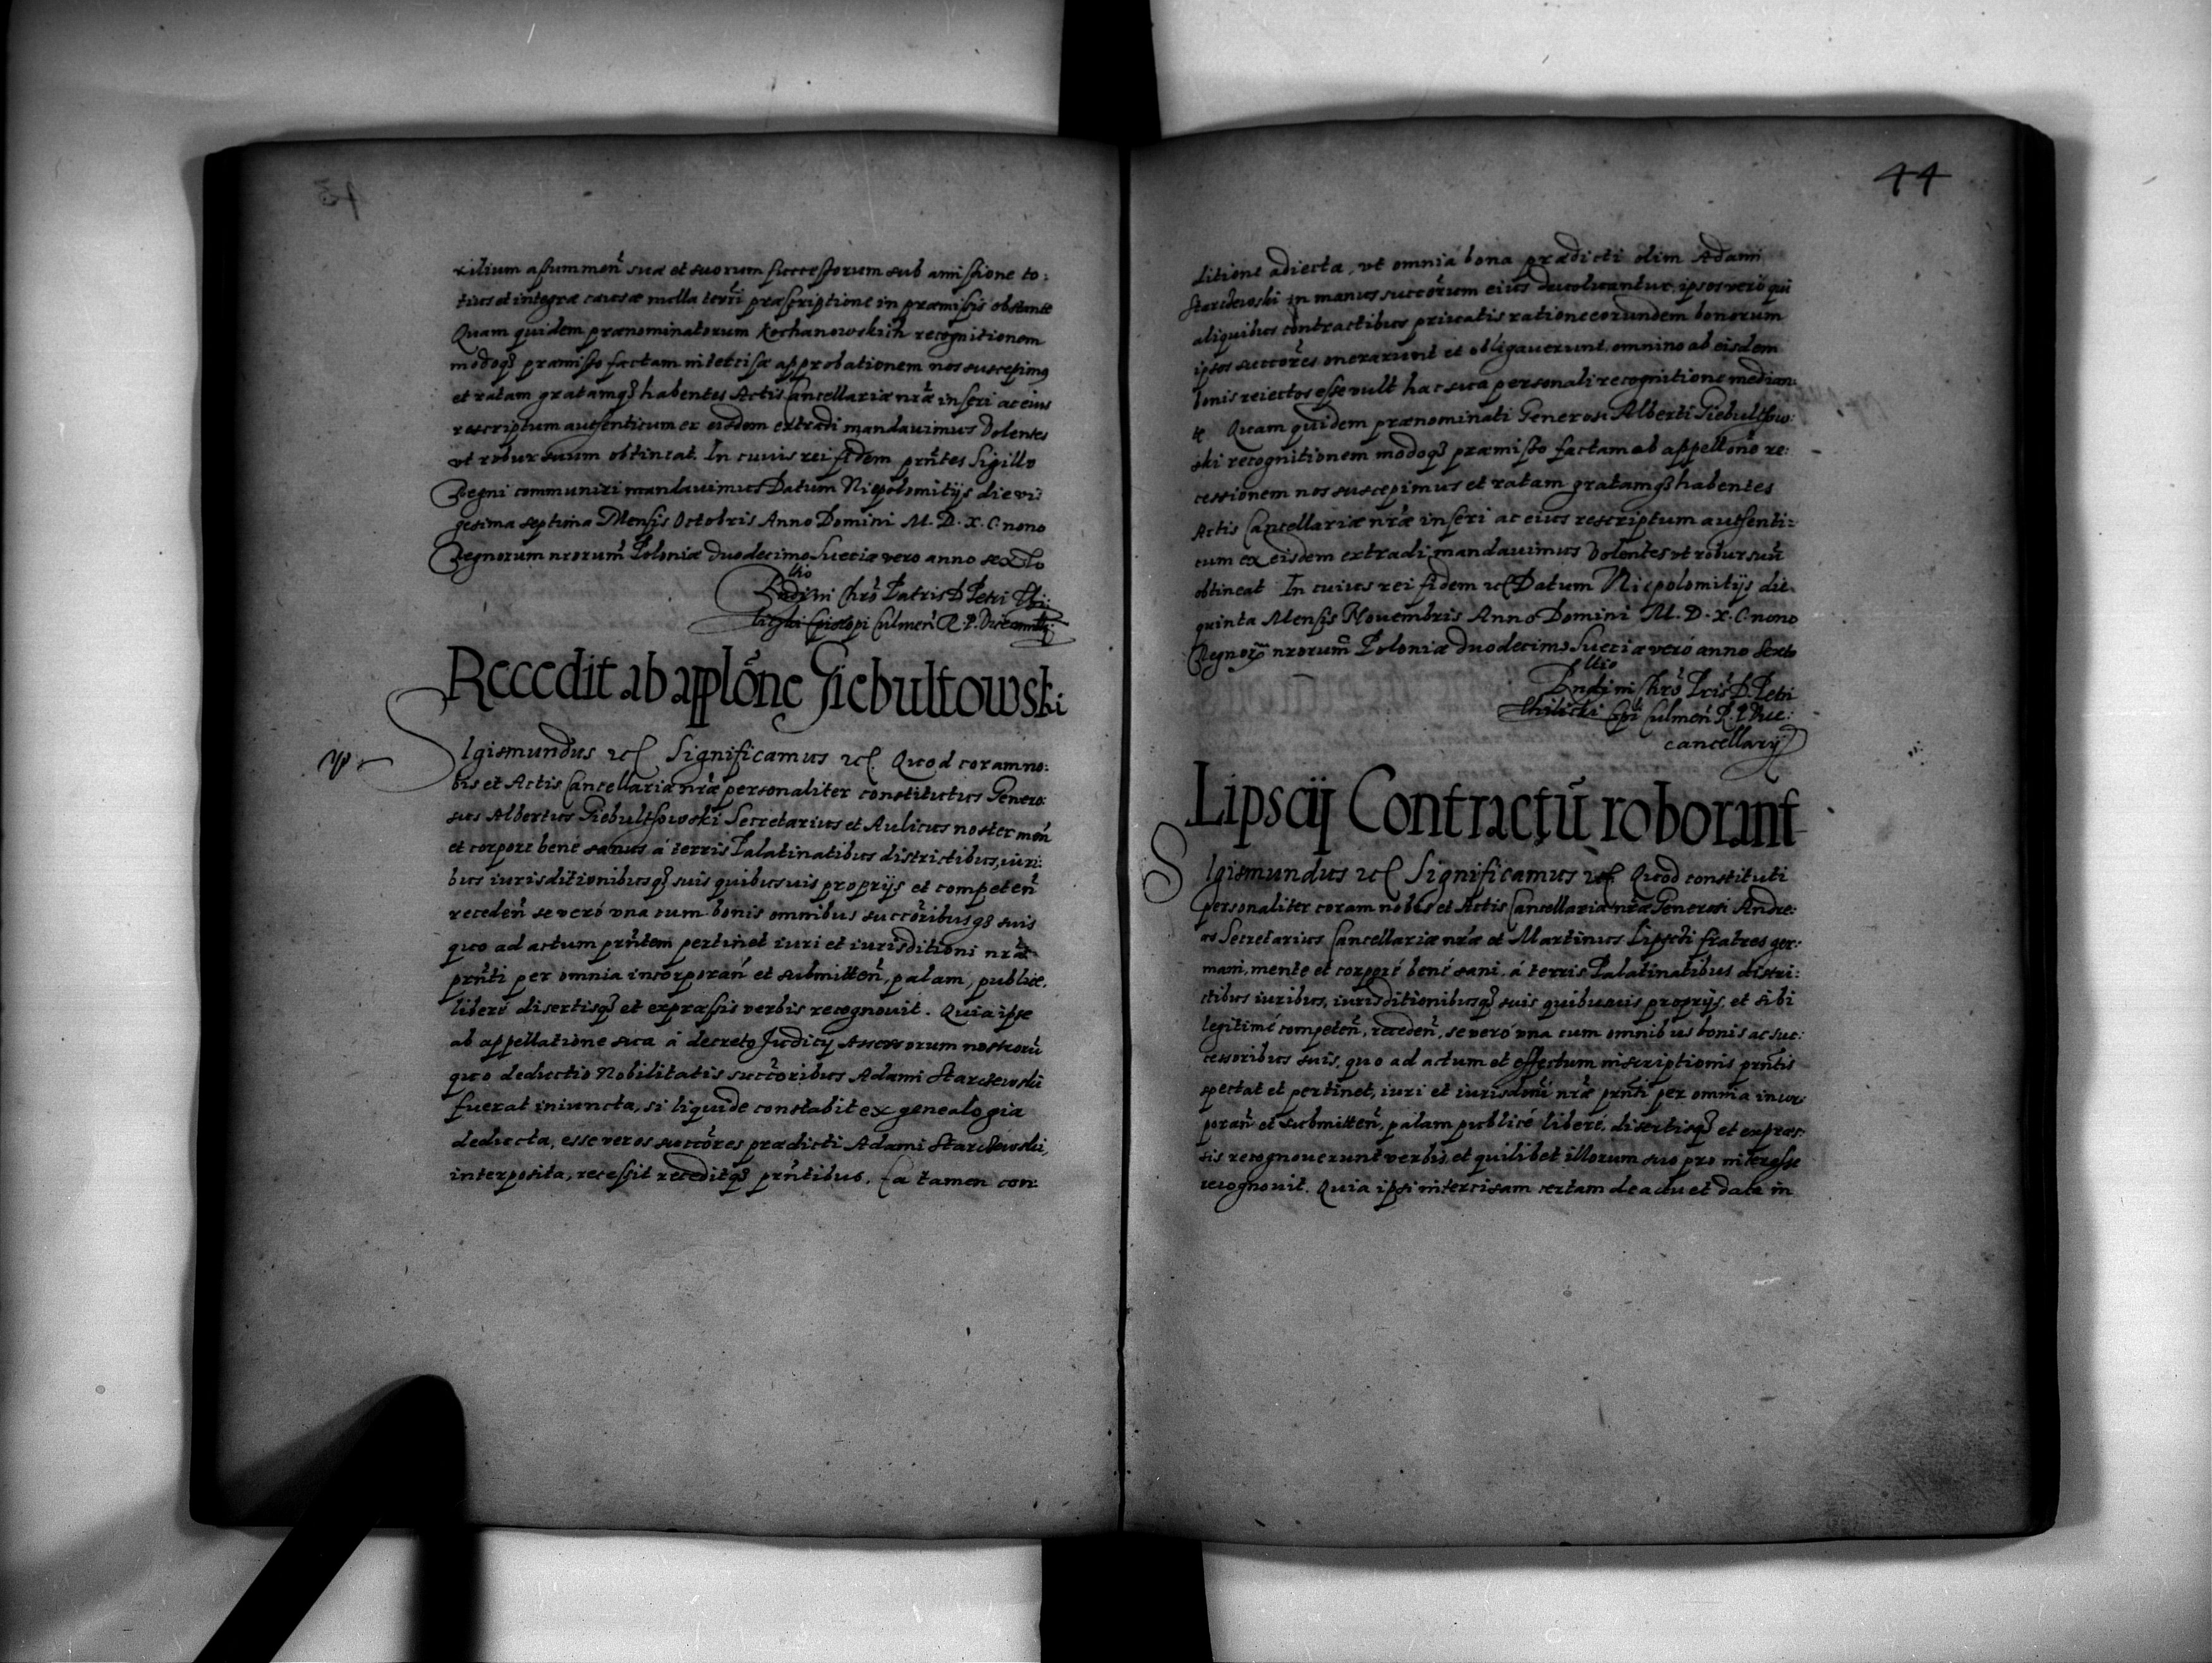 xilium assummen̄ suæ et suorum successorum sub amissione to:
tius et integræ causæ nulla terrī præscriptione in præmissis obstante
Quam quidem prænominatorum Kochanowskich recognitionem
modoq₃ præmisso factam intercisæ approbationem nos suscepimus
et ratam gratamq₃ habentes Actis Cancellariæ nr̄æ inseri ac eius
rescriptum autsenticum ex eisdem extradi mandauimus Volentes
vt robur suum obtineat. In cuius rei fidem prn̄tes Sigillo
Regni communiri mandauimus Datum Niepolomitijs die vi:
gesima septima Mensis Octobris Anno Domini M. D. X. C. nono
Regnorum nrorum̄ Poloniæ duodecimo Sueciæ vero anno sexto
Rndini Chrō Patris D Petri
Episcopi Culmen̄ R. P.
Recedit ab applōne Giebultowski
SIgismundus etc Significamus etc. Quod coram no:
bis et Actis Cancellariæ nr̄æ personaliter constitutus Genero:
sus Albertus Giebultsowski Secretarius et Aulicus noster men̄
et corpore bené sanus á terris Palatinatibus districtibus, iuri:
bus iurisditionibusq₃ suis quibusuis proprijs et competen̄
receden̄ se veró vna cum bonis omnibus succōribusq₃ suis
quo ad actum prn̄tem pertinet iuri et iurisditioni nr̄æ
prn̄ti per omnia incorporan̄ et submitten̄, palam, publicé,
liberé disertisq₃ et expræssis verbis recognouit. Quia ipse
ab appellatione sua á decreto Judicij Assessorum nostrorū
quo deductio Nobilitatis succōribus Adami Starczewski
fuerat iniuncta, si liquide constabit ex genealogia
deducta, esse veros succōres prædicti Adami Starczewski,
interposita, recessit receditq₃ prn̄tibus. Ea tamen con
44
ditione adiecta, vt omnia bona prædicti olim Adami
Starczewski in manus succōrum eius deuoluantur, ipsos veró qui
aliquibus contractibus priuatis ratione eorundem bonorum
ipsos succōres onerarunt et obligauerunt, omnino ab eisdem
bonis reiectos esse vult hac sua personali recognitione median:
te Quam quidem prænominati Generosi Alberti Giebultsow:
ski recognitionem modoq₃ præmisso factam ab appellōne re:
cessionem nos suscepimus et ratam gratamq₃ habentes
Actis Cancellariæ nr̄æ inseri ac eius rescriptum autsenti:
cum ex eisdem extradi mandauimus Volentes vt robur suū
obtineat In cuius rei fidem etc Datum Niepolomitijs die
quinta Mensis Nouembris Anno Domini M. D. X. C. nono
Regnorum nrorum̄ Poloniæ duodecimo Sueciæ veró anno sexto
Rndini Chrō Pris D. Petri
Epi Culmen̄ R. P. Vice:
cancellarij
Lipscij Contractū roborant
SIgismundus etc Significamus etc Quod constituti
personaliter coram nobis et Actis Cancellariæ nr̄æ Generosi Andre:
as Secretarius Cancellariæ nr̄æ et Martinus Lipscki fratres ger:
mani, mente et corporé bené sani, á terris Palatinatibus distri:
ctibus iuribus, iurisditionibusq₃ suis quibusuis proprijs, et sibi
legitimé competen̄, receden̄, se veró vna cum omnibus bonis ac suc:
cessoribus suis, quo ad actum et effectum inscriptionis prn̄tis
spectat et pertinet, iuri et iurisdōni nr̄æ prn̄ti per omnia incor:
poran̄ et submitten̄, palam publicé liberé, disertisq₃ et expræs:
sis recognouerunt verbis, et quilibet illorum suo pro interesse
recognouit. Quia ipsi intercisam certam de actu et data in